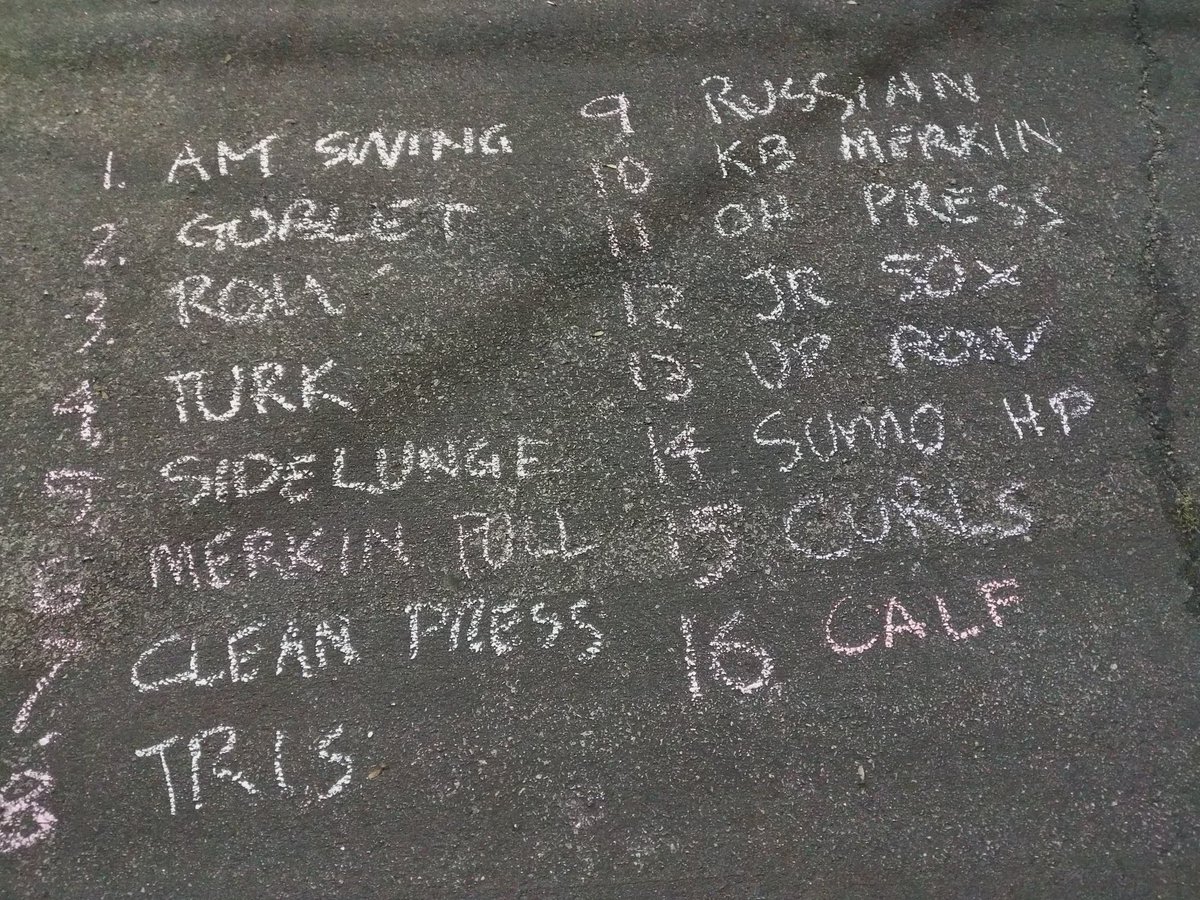 1. AM SWING
2. GOBLET
3. ROW
4 TURK
5 SIDE LUNGE
6 MERKIN PULL
7 CLEAN PRESS
8 TRIS
9 RUSSIAN
10 KB MERKIN
11 OH PRESS
12 JR SOX
13 UP ROW
14 SUMO HP
15 CURLS
16 CALF